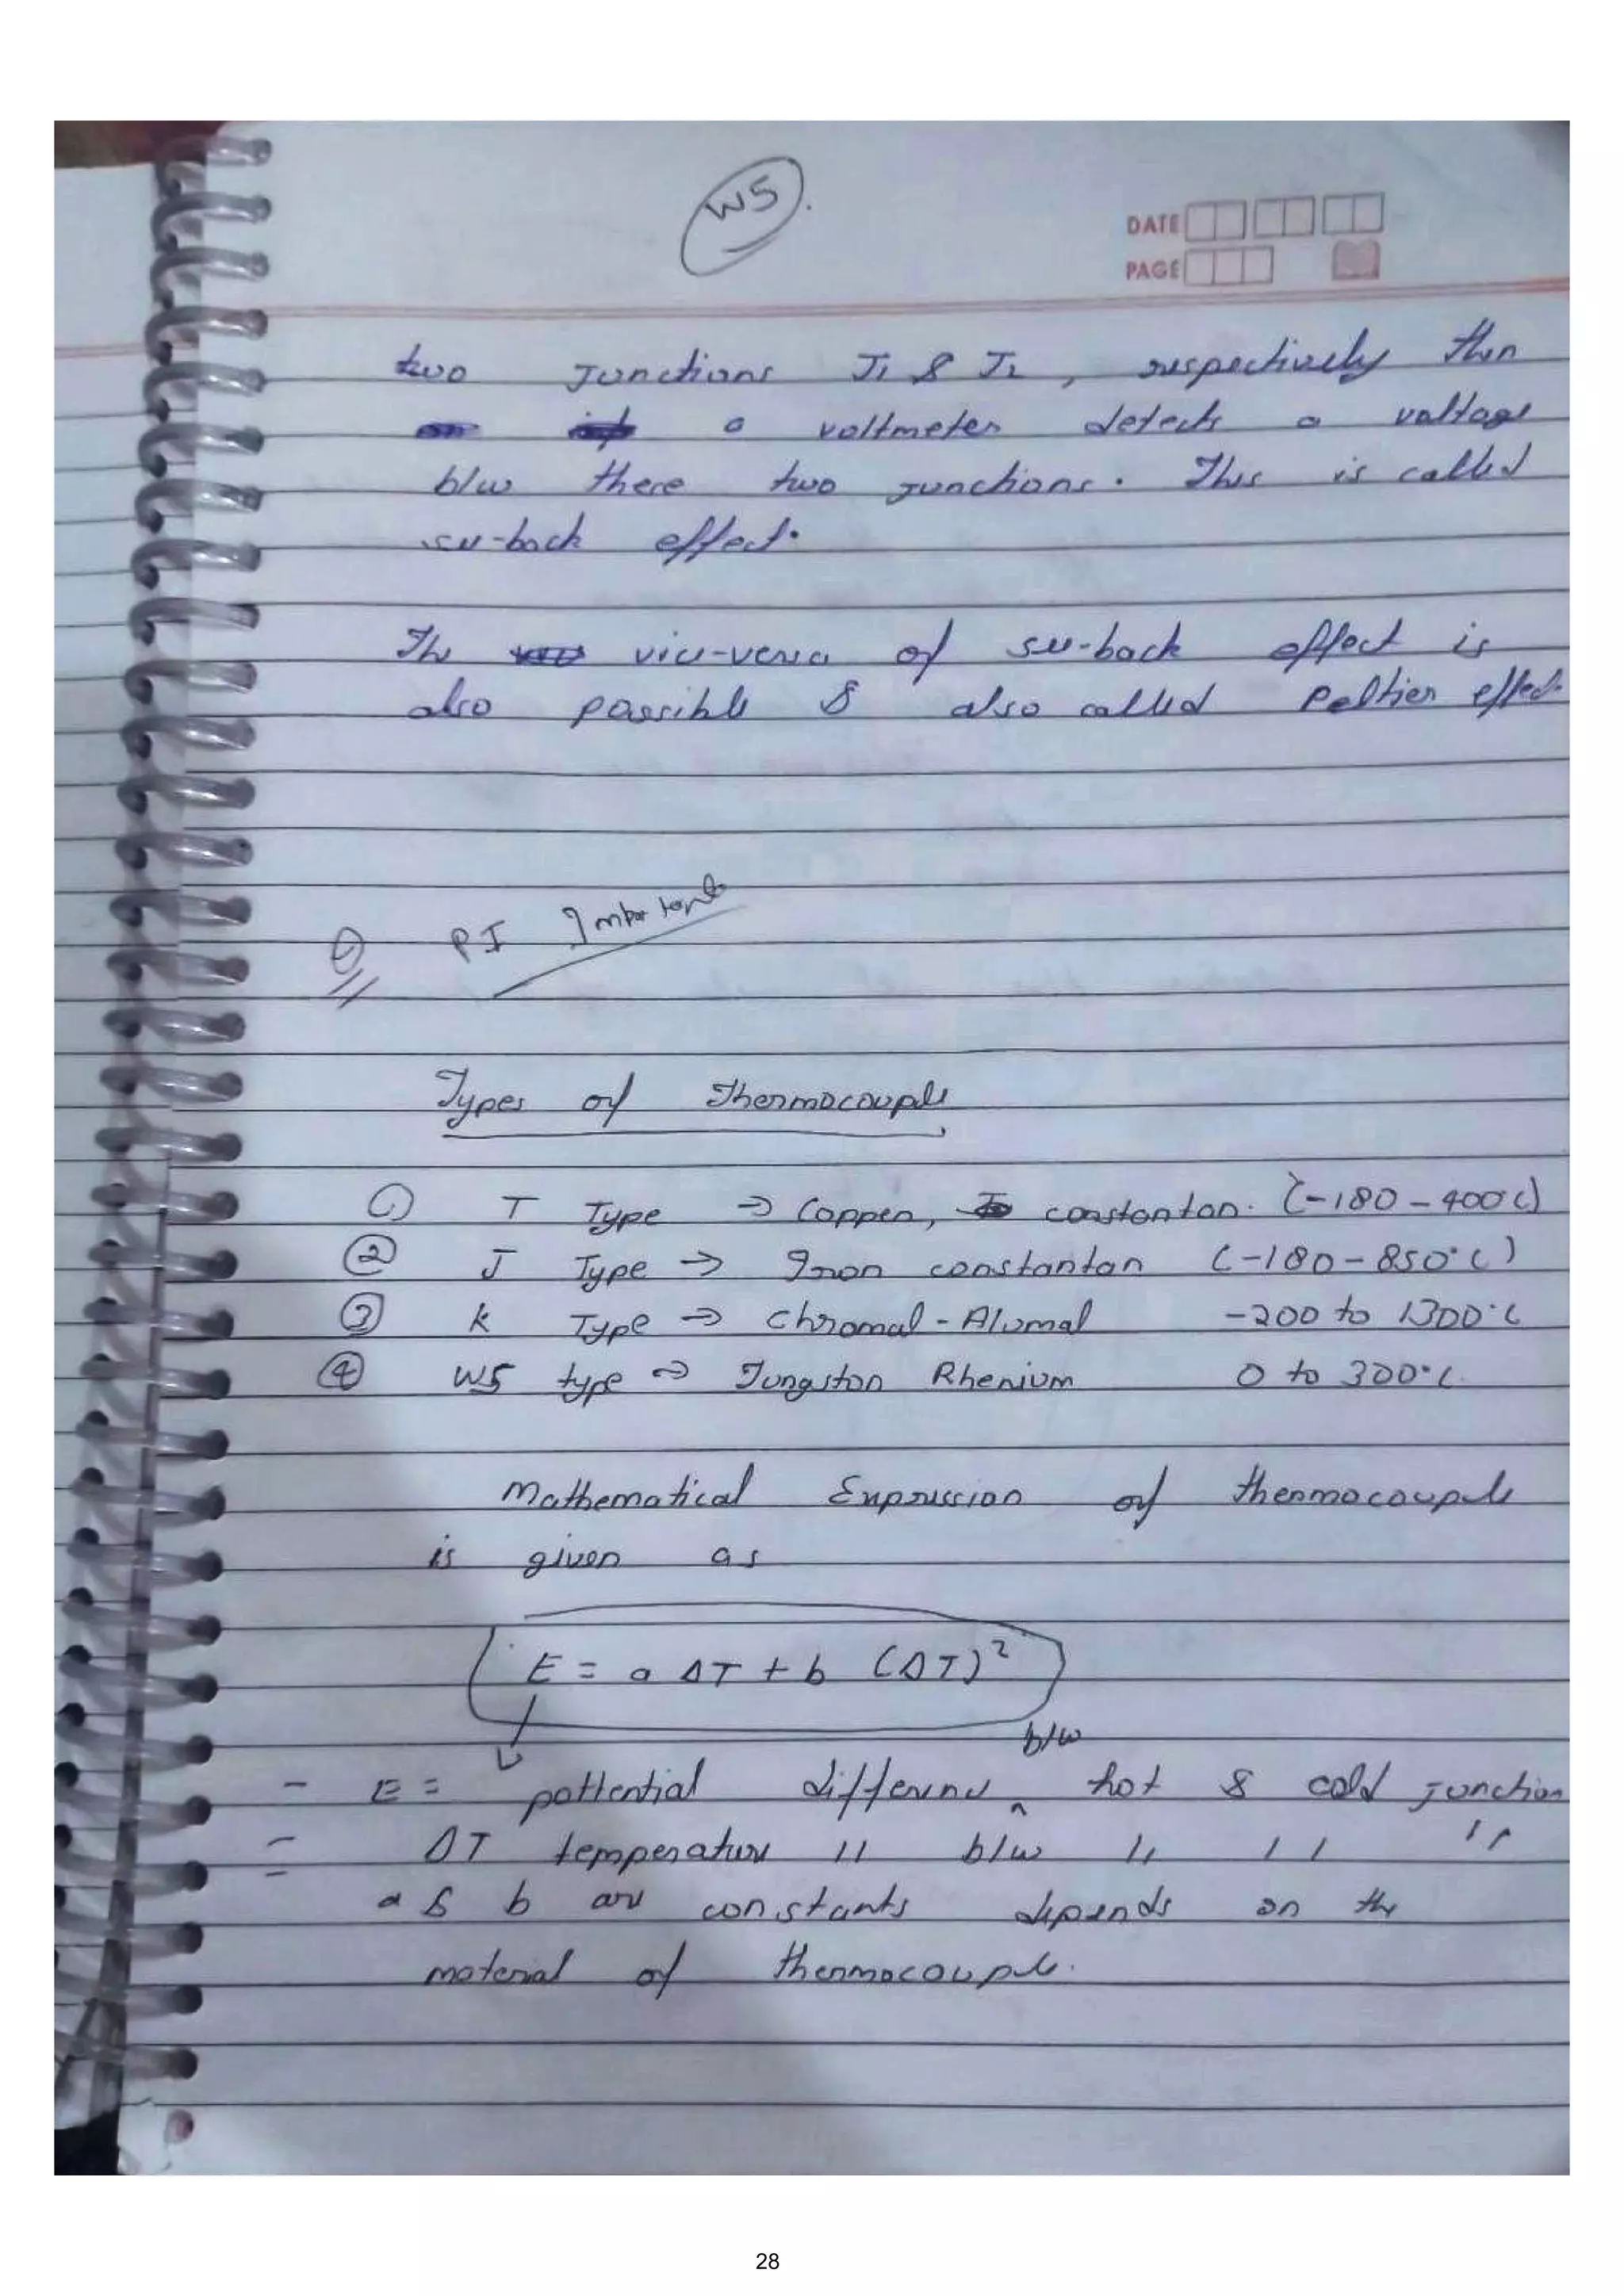 W5
DATE
PAGE
two Junctions J1 & J2, respectively then
a voltmeter detects a voltage
b/w these two junctions. This is called
see-back effect.
The vice-versa of see-back effect is
also possible & also called Peltier effect
Q PI Important
Types of Thermocouple
① T Type ⇒ Copper, constantan. (-180 - 400°C)
② J Type → Iron constantan (-180 - 850°C)
③ K Type ⇒ Chromal - Alumal -200 to 1300°C
④ W5 type ⇒ Tungston Rhenium 0 to 300°C.
Mathematical Expression of thermocouple
is given as
E = a ΔT + b (ΔT)²
- E = pottential difference b/w hot & cold junction
= ΔT temperature 〃 b/w 〃 〃 〃
a & b are constants depends on the
material of thermocouple.
28